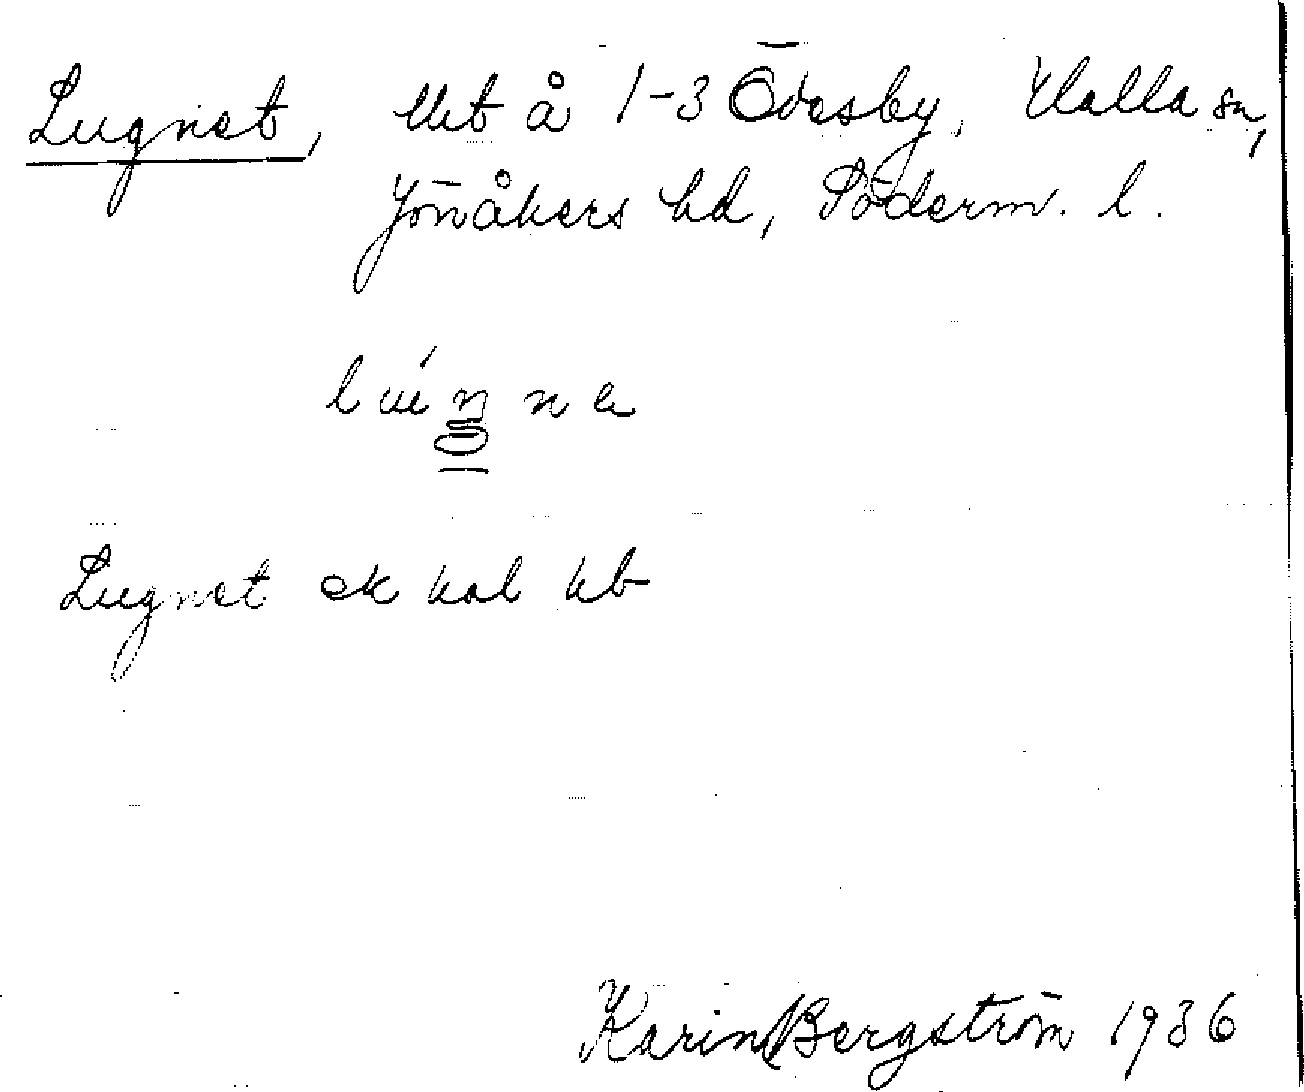 Lugnet, lht å 1-3 Ödesby, Halla sn,
Jönåkers hd, Söderm. l.
Lugnet ek kal kb
Karin Bergström 1936